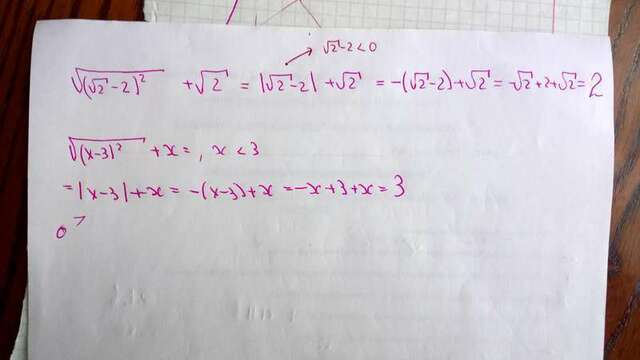 √2 - 2 < 0
√(√2 - 2)² + √2 = |√2 - 2| + √2 = -(√2 - 2) + √2 = -√2 + 2 + √2 = 2
√(x-3)² + x = , x < 3
= |x-3| + x = -(x-3) + x = -x + 3 + x = 3
0 >